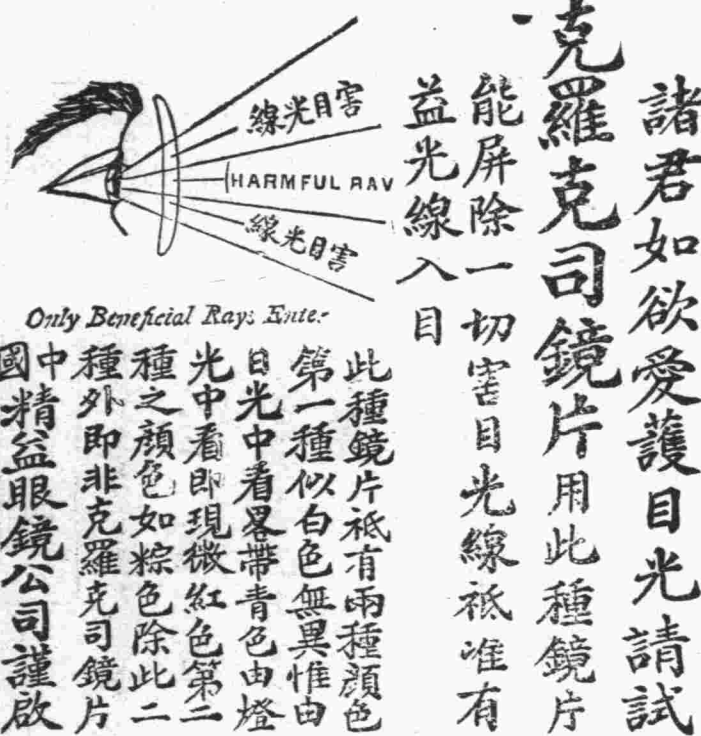 諸君如欲愛護目光請試
克羅克司鏡片用此種鏡片
能屏除一切害目光線祗唯有
益光線入目
害目光線
HARMFUL RAY
害目光線
Only Beneficial Rays Enter
此種鏡片祗有兩種顏色
第一種似白色無異惟由
日光中看畧帶青色由燈
光中看即現微紅色第二
種之顏色如粽色除此二
種外即非克羅克司鏡片
中國精益眼鏡公司謹啟